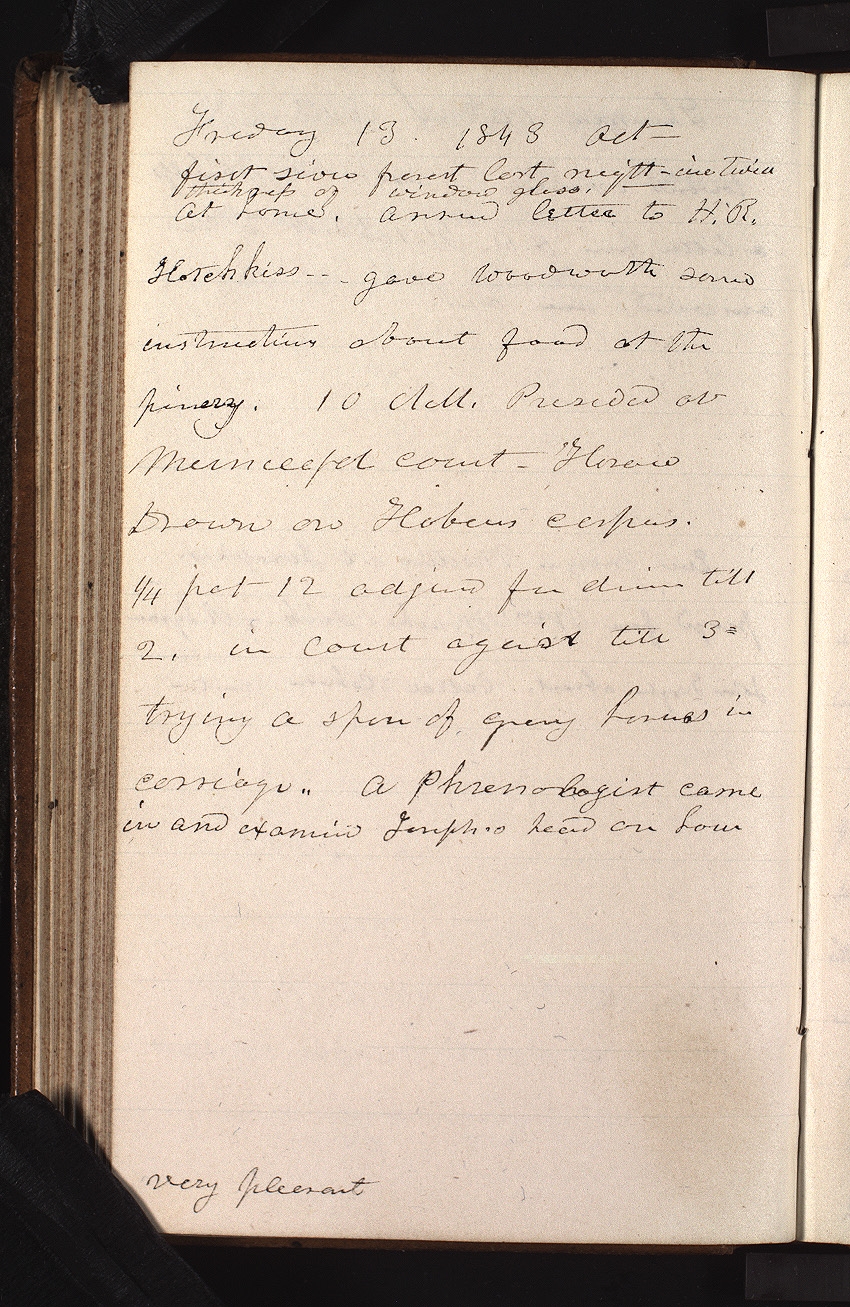 Friday 13. 1843 Oct—
first sever frost last night—ice twice
thickness of window glass.
At home. answerd letter to H. R.
Hotchkiss -- . gave Woodworth some
instructions about food at the
pinery. 10 A.M. Presided at
Municipal court— Horace
Brown on Habeus corpus.
1/4 pst 12 adjund for dinner till
2. in court against till 3=
trying a span of grey horses in
carriage.. A Phrenologist came
in and examind Joseph.s head an hour
very pleasant